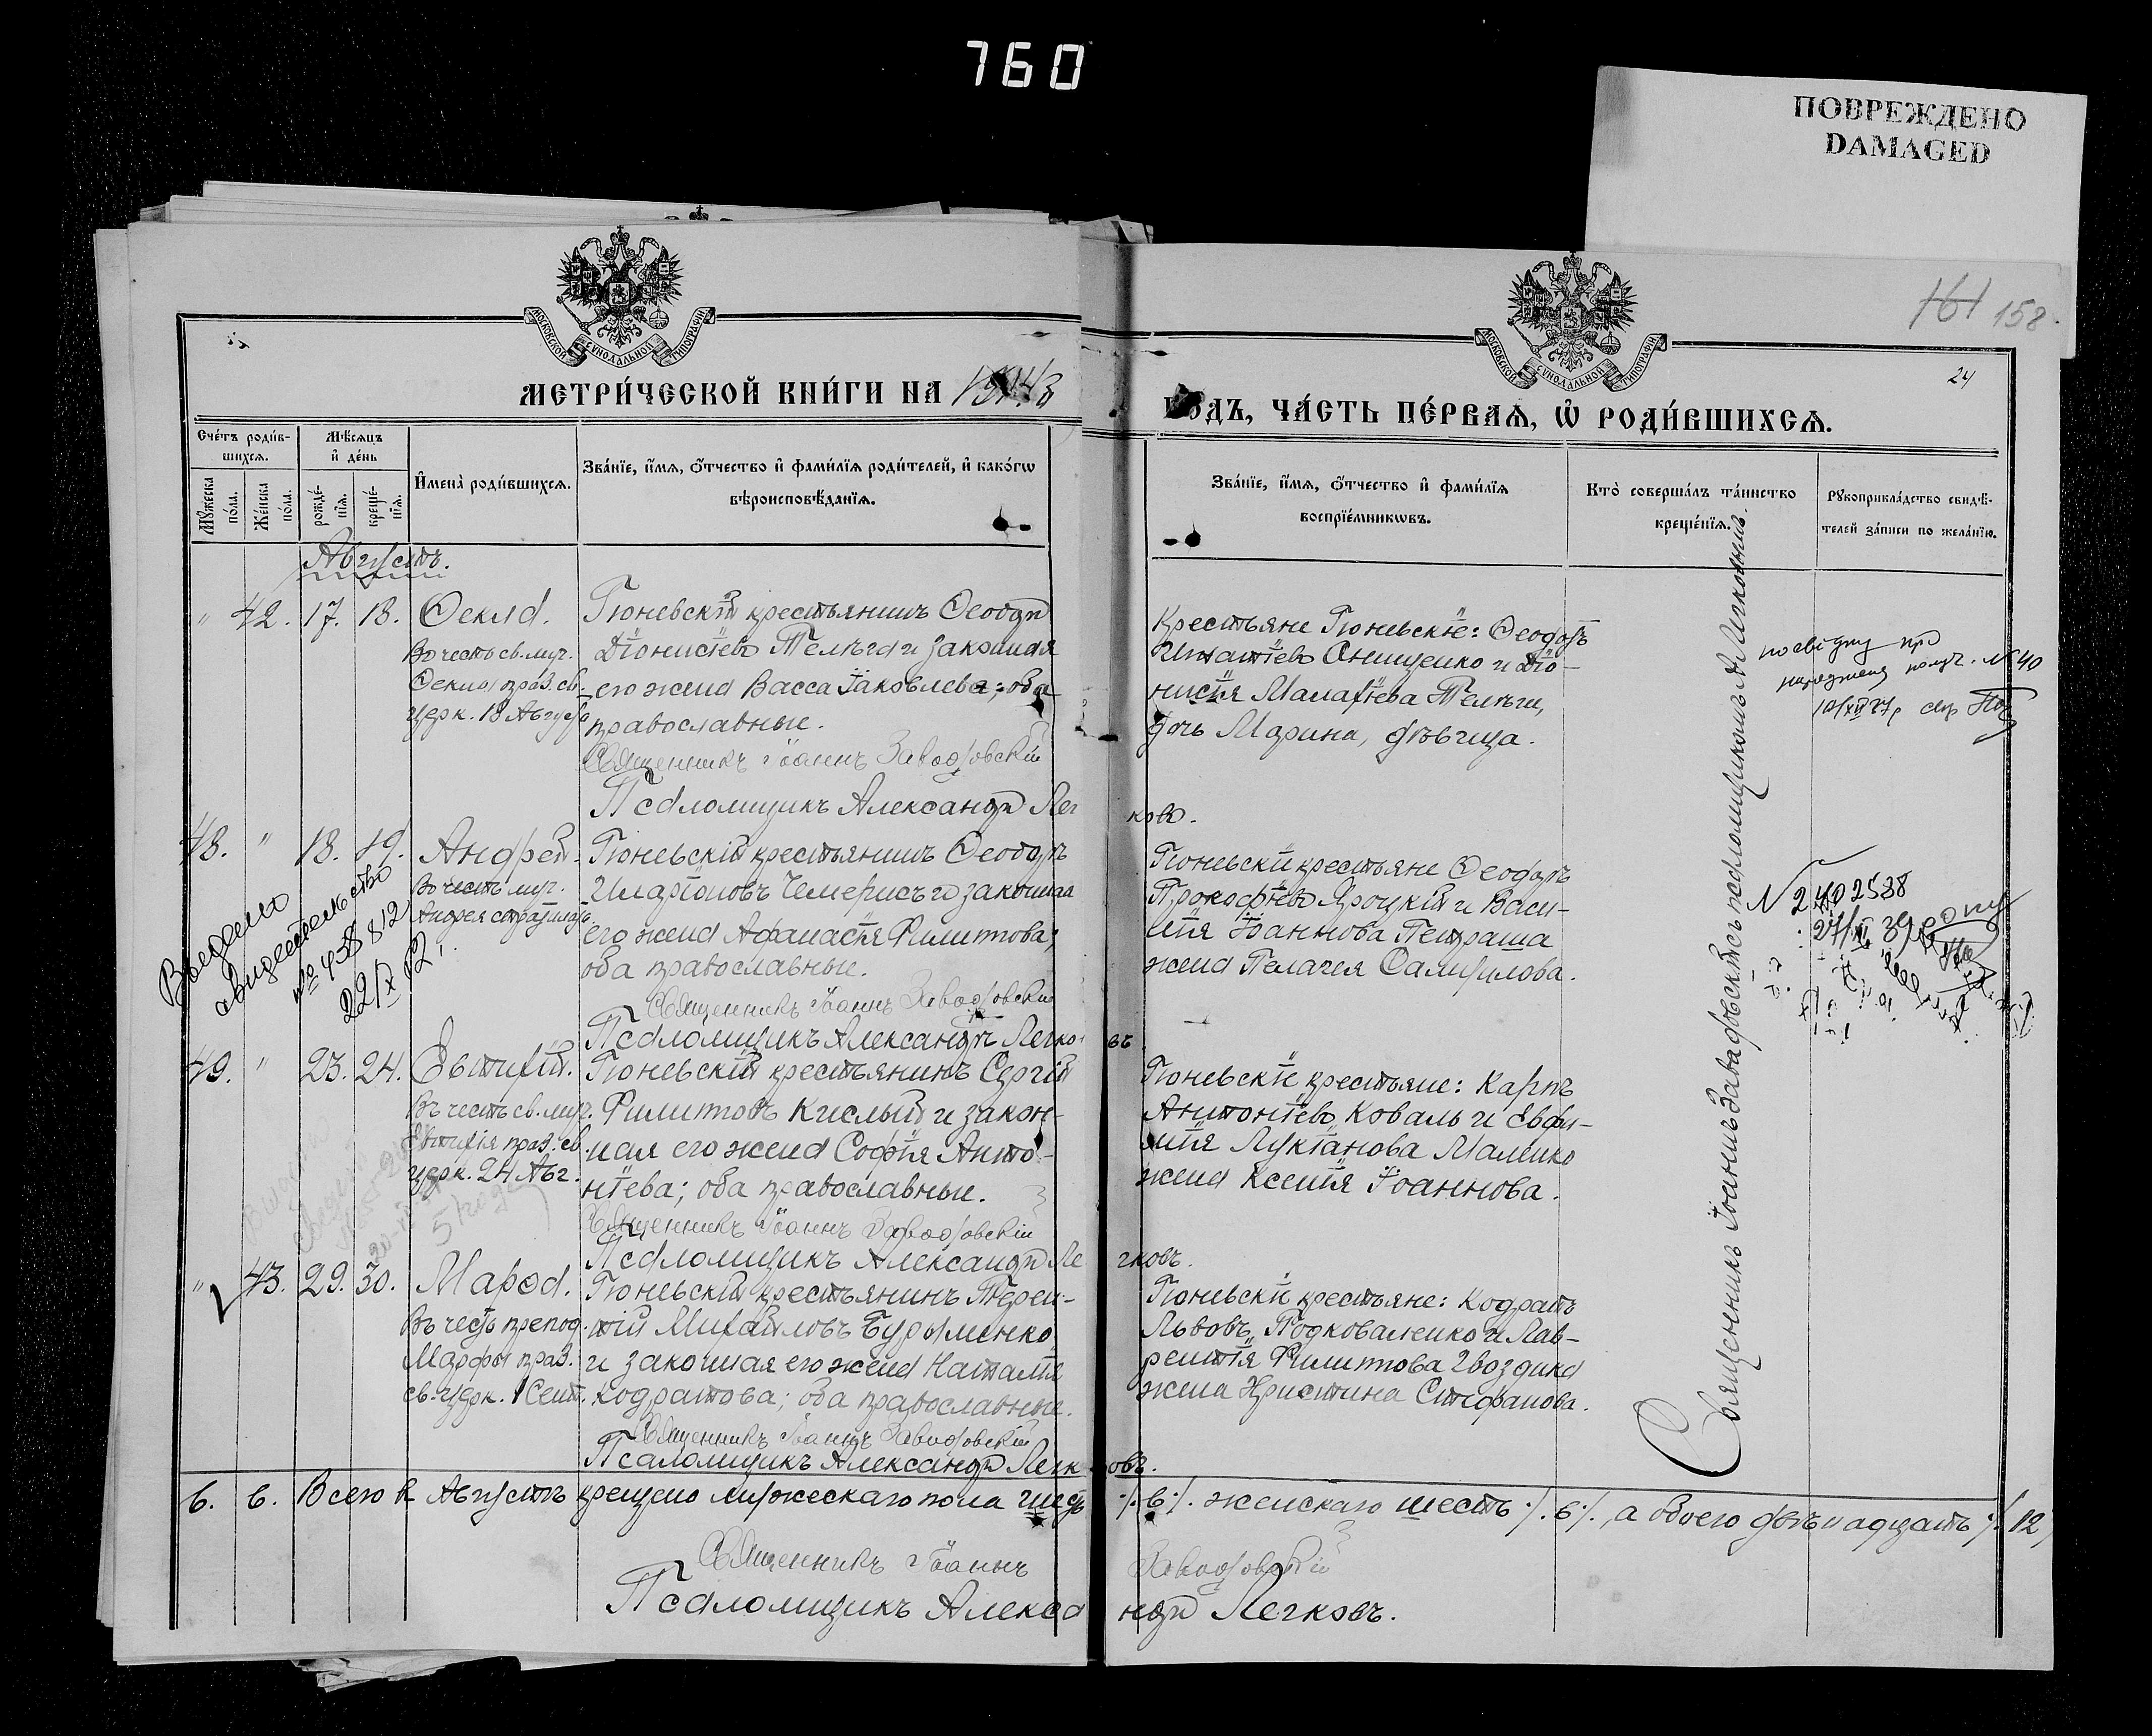 760
ПОВРЕЖДЕНО
DAMAGED
161 158.
24
МОСКОВСКОЙ СѴНОДАЛЬНОЙ ТИПОГРАФІИ
МОСКОВСКОЙ СѴНОДАЛЬНОЙ ТИПОГРАФІИ
МЕТРИ́ЧЕСКОЙ КНИ́ГИ НА
ГОДЪ, ЧА́СТЬ ПЕ́РВАѦ, Ѡ҆ РОДИ́ВШИХСѦ.
Сче́тъ роди́в-
шихсѧ.
Мѣ́сѧцъ
и҆ де́нь
Мꙋ́жеска
по́ла.
Же́нска
по́ла.
рожде́-
нїѧ.
креще́-
нїѧ.
И҆мена̀ роди́вшихсѧ.
Зва́нїе, и҆́мѧ, ѻ҆́тчество и҆ фами́лїѧ роди́телей, и҆ како́гѡ
вѣроисповѣ́данїѧ.
Зва́нїе, и҆́мѧ, ѻ҆́тчество и҆ фами́лїѧ
воспрїе́мникѡвъ.
Кто̀ соверша́лъ та́инство
креще́нїѧ.
Рꙋкоприкла́дство свидѣ́-
телей за́писи по жела́нїю.
Августъ.
" 42. 17. 18. Ѳекла.
Въ честь св. муч.
Ѳеклы праз. св.
церк. 18 Августа
Гюневскій крестьянинъ Ѳеодоръ
Діонисіевъ Телѣга и законная
его жена Васса Іаковлева; оба
православные.
Священникъ Іоаннъ Завадовскій
Псаломщикъ Александръ Легковъ.
Крестьяне Гюневскіе: Ѳеодоръ
Игнатіевъ Онищенко и Діо-
нисія Малахіева Телѣги,
дочь Марина, дѣвица.
№ 40
48. " 18. 19. Андрей.
Въ честь муч.
Андрея стратилата.
Гюневскій крестьянинъ Ѳеодоръ
Иларіоновъ Чемерисъ и законная
его жена Афанасія Филиппова;
оба православные.
Священникъ Іоаннъ Завадовскій
Псаломщикъ Александръ Легковъ
Гюневскіе крестьяне Ѳеодоръ
Прокофіевъ Яроцкій и Васи-
лія Іоаннова Петраша
жена Пелагея Самуилова.
Выдано
свидетельство
22/X
49. " 23. 24. Евтихій.
Въ честь св. муч.
Евтихія праз. св.
церк. 24 Авг.
Гюневскій крестьянинъ Сергій
Филипповъ Кислый и закон-
ная его жена Софія Анто-
ніева; оба православные.
Священникъ Іоаннъ Завадовскій
Псаломщикъ Александръ Легковъ.
Гюневскіе крестьяне: Карпъ
Антоніевъ Коваль и Евфи-
мія Лукіанова Маленко
жена Ксенія Іоаннова.
" 43. 29. 30. Марѳа.
Въ честь препод.
Марфы праз.
св. церк. 1 Сент.
Гюневскій крестьянинъ Терен-
тій Михайловъ Бурыменко
и законная его жена Наталія
Кодратова; оба православные.
Священникъ Іоаннъ Завадовскій
Псаломщикъ Александръ Легковъ.
Гюневскіе крестьяне: Кодратъ
Львовъ Подковаленко и Лав-
рентія Филиппова Гвоздика
жена Христина Стефанова.
Священникъ Іоаннъ Завадовскій съ псаломщикомъ А. Легковымъ.
6. 6. Всего въ Августѣ крещено мужескаго пола шесть ·/.6·/. женскаго шесть ·/.6·/., а обоего двѣнадцать ·/.12
Священникъ Іоаннъ Завадовскій
Псаломщикъ Александръ Легковъ.